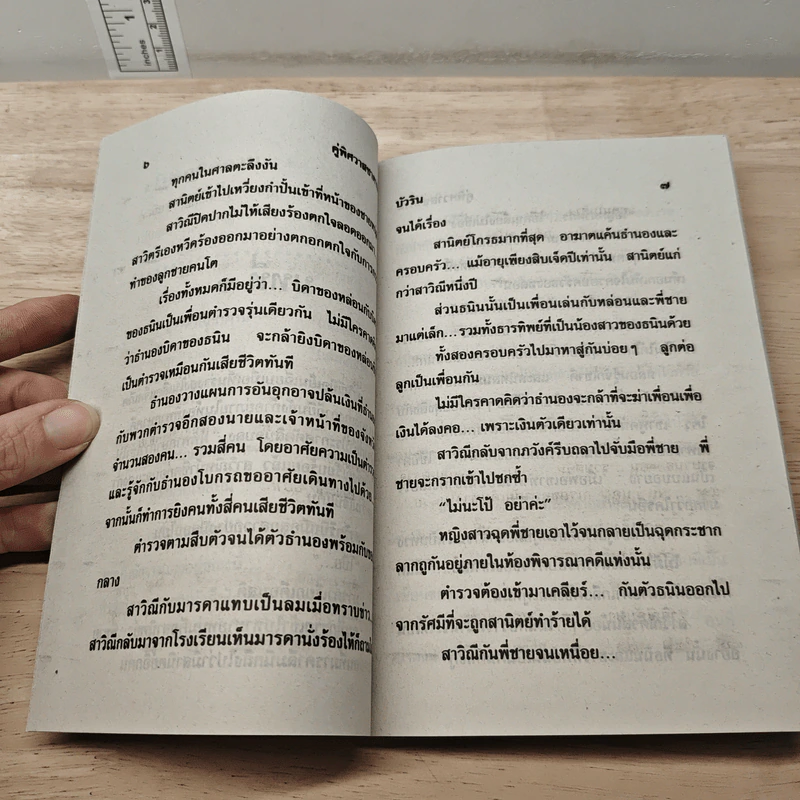 1
2
inches
1
๖
คู่พิศวาส
ทุกคนในศาลตะลึงงัน
สานิตย์เข้าไปเหวี่ยงกำปั้นเข้าที่หน้าของชาย
สาวิณีปิดปากไม่ให้เสียงร้องตกใจลอดออกมา
สาวิตรีเองหวีดร้องออกมาอย่างตกอกตกใจกับการ
ทำของลูกชายคนโต
เรื่องทั้งหมดก็มีอยู่ว่า... บิดาของหล่อนกับ
ของธนินเป็นเพื่อนตำรวจรุ่นเดียวกัน ไม่มีใครคาด
ว่าธำนองบิดาของธนิน จะกล้ายิงบิดาของหล่อน
เป็นตำรวจเหมือนกันเสียชีวิตทันที
ธำนองวางแผนการอันอุกอาจปล้นเงินที่
กับพวกตำรวจอีกสองนายและเจ้าหน้าที่ของ
จำนวนสองคน... รวมสี่คน โดยอาศัยความเป็น
และรู้จักกับธำนองโบกรถขออาศัยเดินทางไปด้วย
จากนั้นก็ทำการยิงคนทั้งสี่คนเสียชีวิตทันที
ตำรวจตามสืบตัวจนได้ตัวธำนองพร้อมกับ
กลาง
สาวิณีกับมารดาแทบเป็นลมเมื่อทราบข่าว
สาวิณีกลับมาจากโรงเรียนเห็นมารดานั่งร้องไห้
บัวริน
๗
จนได้เรื่อง
สานิตย์โกรธมากที่สุด อาฆาตแค้นธำนองและ
ครอบครัว... แม้อายุเพียงสิบเจ็ดปีเท่านั้น สานิตย์แก่
กว่าสาวิณีหนึ่งปี
ส่วนธนินนั้นเป็นเพื่อนเล่นกับหล่อนและพี่ชาย
มาแต่เล็ก... รวมทั้งธารทิพย์ที่เป็นน้องสาวของธนินด้วย
ทั้งสองครอบครัวไปมาหาสู่กันบ่อยๆ ลูกต่อ
ลูกเป็นเพื่อนกัน
ไม่มีใครคาดคิดว่าธำนองจะกล้าที่จะฆ่าเพื่อนเพื่อ
เงินได้ลงคอ... เพราะเงินตัวเดียวเท่านั้น
สาวิณีกลับจากภวังค์รีบถลาไปจับมือพี่ชาย พี่
ชายจะกรากเข้าไปชกซ้ำ
“ไม่นะโป้ อย่าค่ะ”
หญิงสาวฉุดพี่ชายเอาไว้จนกลายเป็นฉุดกระชาก
ลากถูกันอยู่ภายในห้องพิจารณาคดีแห่งนั้น
ตำรวจต้องเข้ามาเคลียร์... กันตัวธนินออกไป
จากรัศมีที่จะถูกสานิตย์ทำร้ายได้
สาวิณีกันพี่ชายจนเหนื่อย...